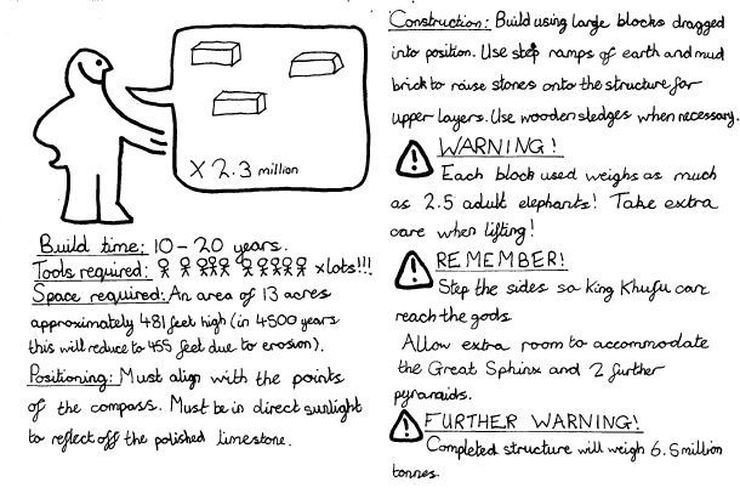 X 2.3 million
Build time: 10-20 years.
Tools required: x lots!!!
Space required: An area of 13 acres
approximately 481 feet high (in 4500 years
this will reduce to 455 feet due to erosion).
Positioning: Must align with the points
of the compass. Must be in direct sunlight
to reflect off the polished limestone.
Construction: Build using large blocks dragged
into position. Use step ramps of earth and mud
brick to raise stones onto the structure for
upper layers. Use wooden sledges when necessary.
WARNING!
Each block used weighs as much
as 2.5 adult elephants! Take extra
care when lifting!
REMEMBER!
Step the sides so King Khufu can
reach the gods.
Allow extra room to accommodate
the Great Sphinx and 2 further
pyramids.
FURTHER WARNING!
Completed structure will weigh 6.5 million
tonnes.